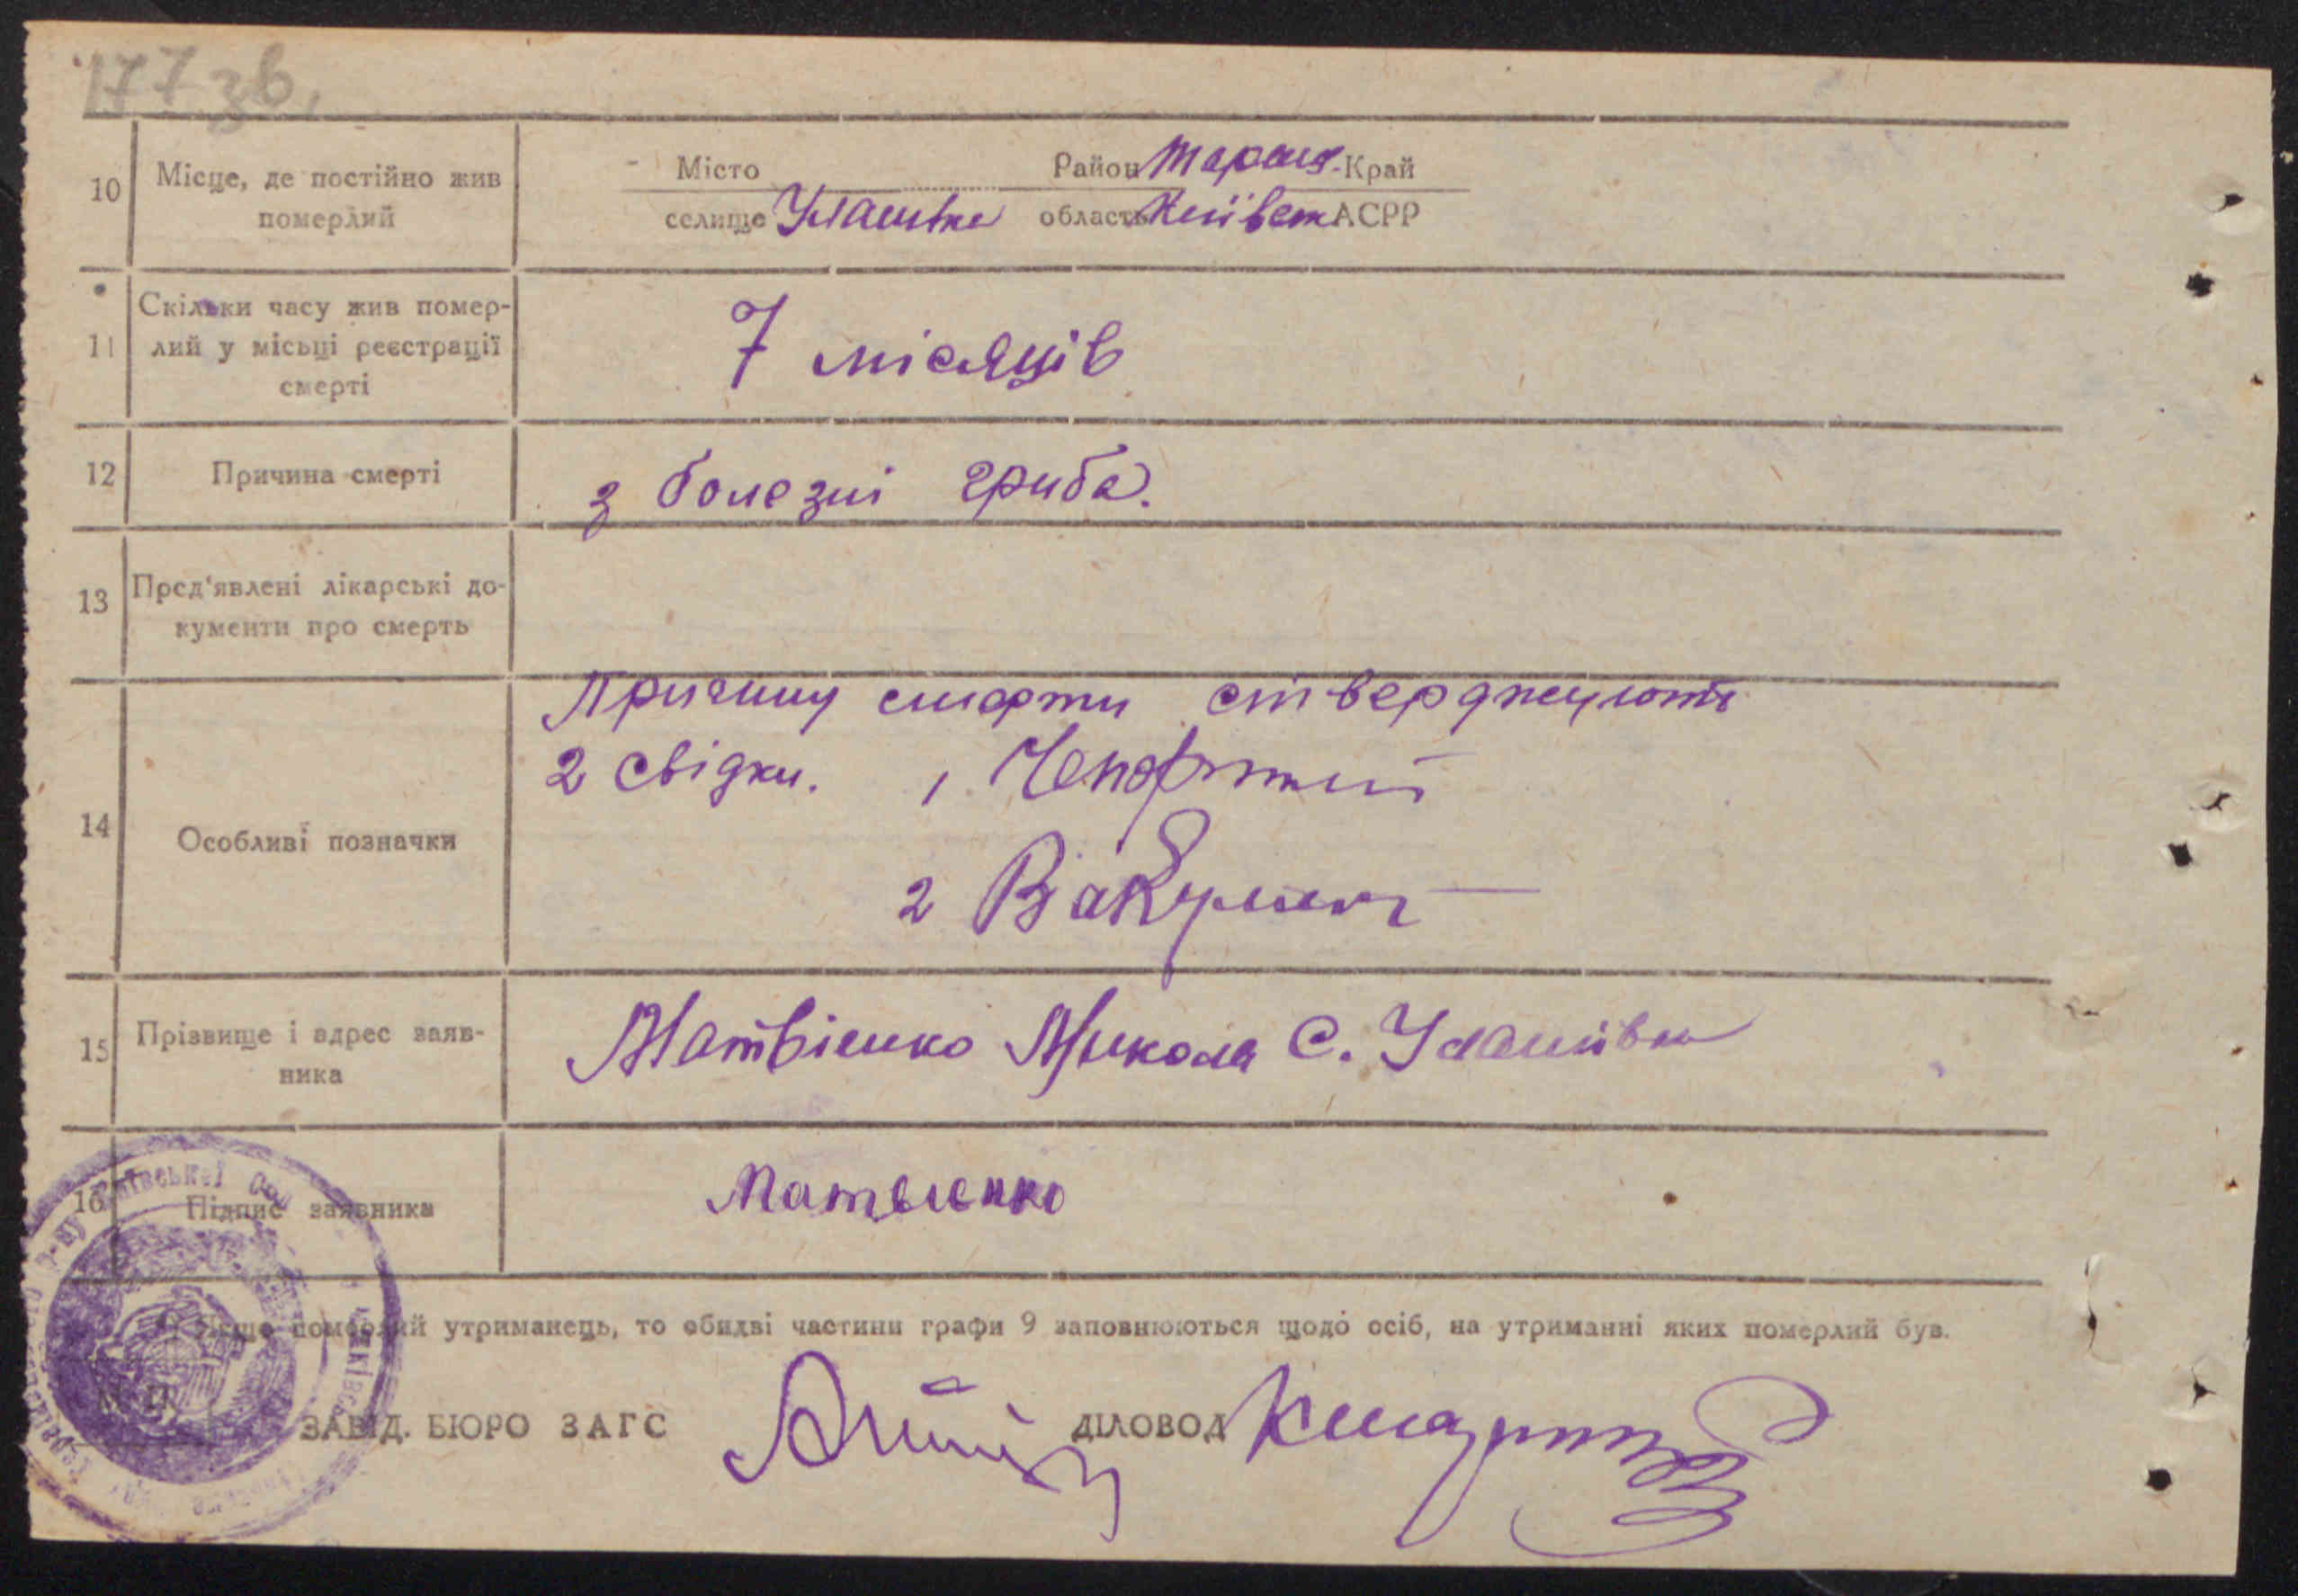 177 зв.
10 Місце, де постійно жив померлий
Місто Район Тараща. Край
селище Улашівка область Київськ АСРР
11 Скільки часу жив помер-
лий у місьці реєстрації
смерті
7 місяців
12 Причина смерті
з болезні гриба.
13 Пред'явлені лікарські до-
кументи про смерть
14 Особливі позначки
Причину смерти стверджують
2 свідки. 1
2 Вакулюк
15 Прізвище і адрес заяв-
ника
Матвіенко Микола С. Улашівка
16 Підпис заявника
Матвиенко
Якщо померлий утриманець, то обидві частини графи 9 заповнюються щодо осіб, на утриманні яких померлий був.
М. П.
ЗАВІД. БЮРО ЗАГС ДІЛОВОД